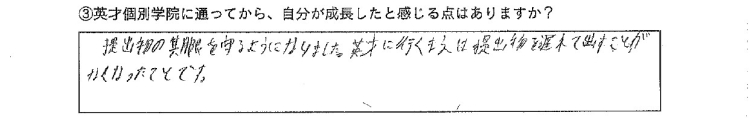 ③英才個別学院に通ってから、自分が成長したと感じる点はありますか？
提出物の期限を守るようになりました。英才に行くまえは提出物を遅れて出すことが
なくなったことです。